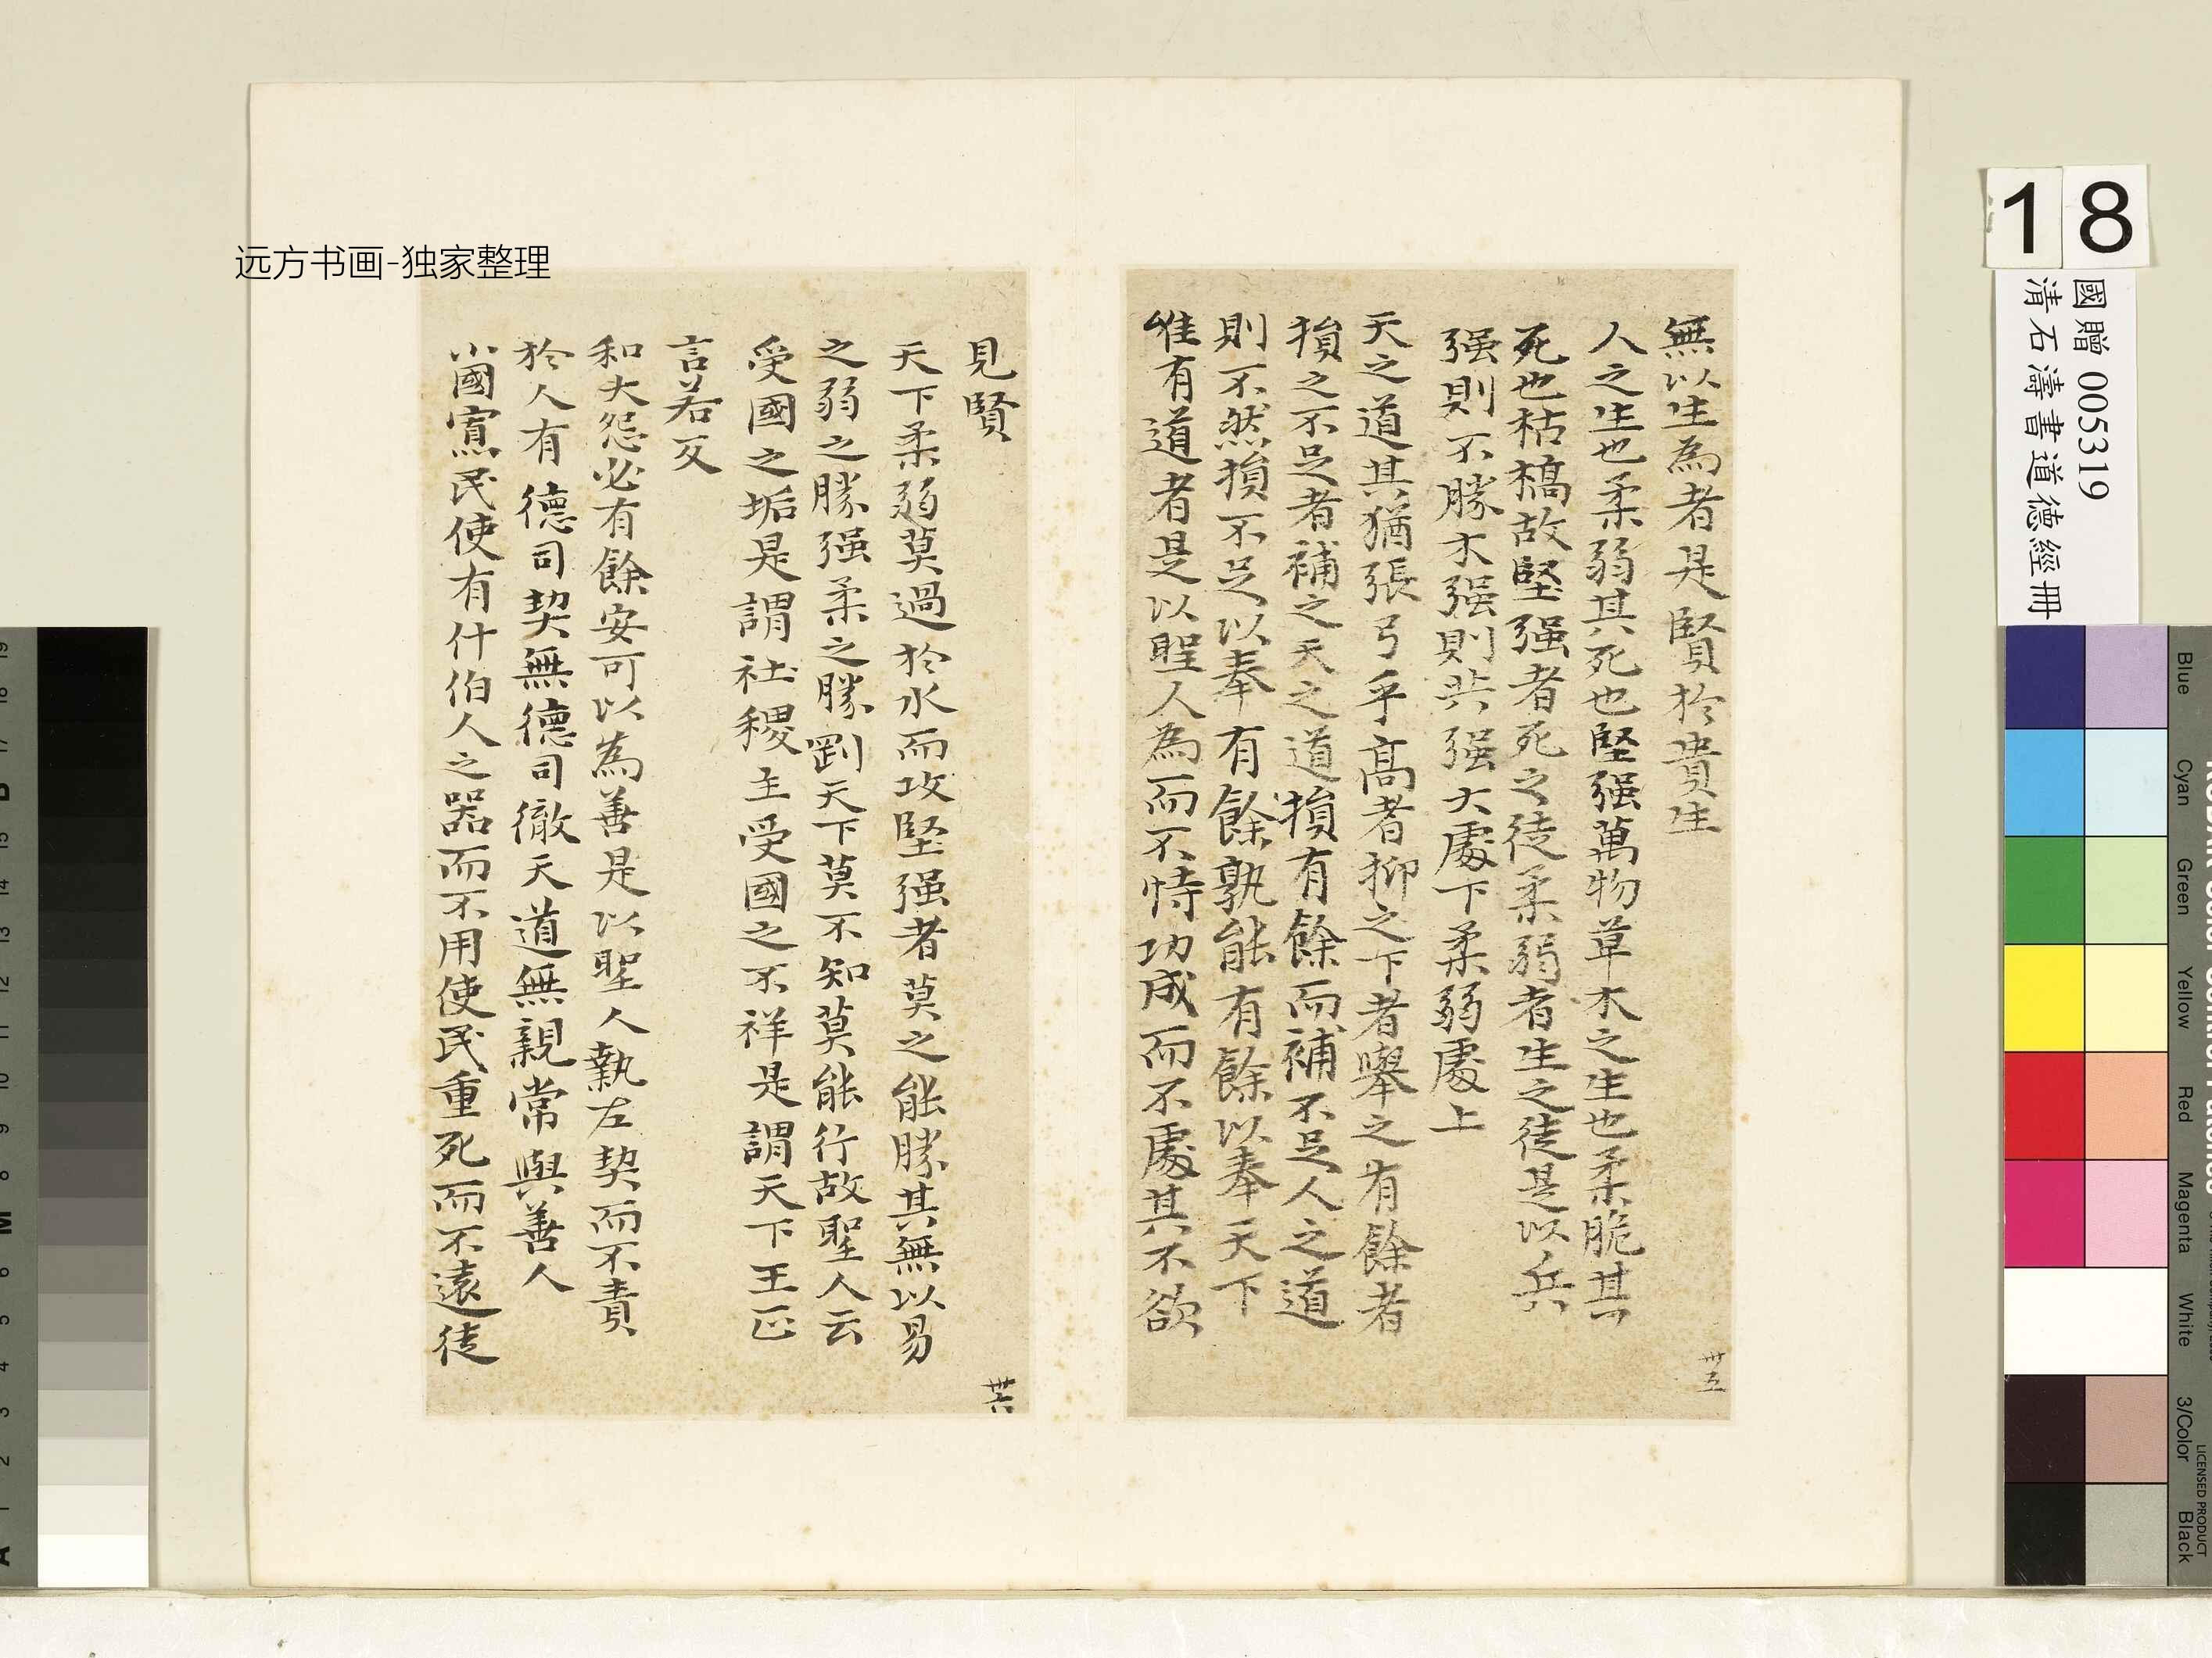 無以生為者是賢於貴生
人之生也柔弱其死也堅强萬物草木之生也柔脆其
死也枯槁故堅强者死之徒柔弱者生之徒是以兵
强則不勝木强則共强大處下柔弱處上
天之道其猶張弓乎高者抑之下者舉之有餘者
損之不足者補之天之道損有餘而補不足人之道
則不然損不足以奉有餘孰能有餘以奉天下
唯有道者是以聖人為而不恃功成而不處其不欲
卅五
見賢
天下柔弱莫過於水而攻堅强者莫之能勝其無以易
之弱之勝强柔之勝剛天下莫不知莫能行故聖人云
受國之垢是謂社稷主受國之不祥是謂天下王正
言若反
和大怨必有餘怨安可以為善是以聖人執左契而不責
於人有德司契無德司徹天道無親常與善人
小國寡民使有什伯人之器而不用使民重死而不遠徙
卅六
远方书画-独家整理
18
國贈 005319
清石濤書道德經冊
Blue
Cyan
Green
Yellow
Red
Magenta
White
3/Color
Black
LICENSED PRODUCT